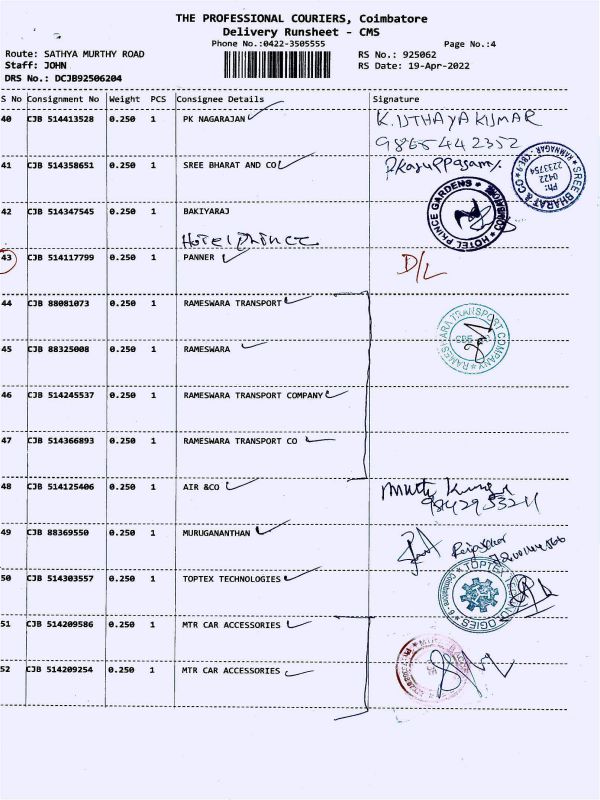 THE PROFESSIONAL COURIERS, Coimbatore
Delivery Runsheet - CMS
Phone No.:0422-3505555
Page No.:4
Route: SATHYA MURTHY ROAD
RS No.: 925062
Staff: JOHN
RS Date: 19-Apr-2022
DRS No.: DCJB92506204
S No Consignment No Weight PCS Consignee Details Signature
40 CJB 514413528 0.250 1 PK NAGARAJAN K.UTHAYAKUMAR
9865442352
41 CJB 514358651 0.250 1 SREE BHARAT AND CO
SREE BHARAT & CO RAMNAGAR - CBE-9
Ph:
0422
2233754
42 CJB 514347545 0.250 1 BAKIYARAJ
HOTEL PRINCE GARDENS
Hotel prince
43 CJB 514117799 0.250 1 PANNER D/L
44 CJB 88081073 0.250 1 RAMESWARA TRANSPORT
RAMESHWARA TRANSPORT COMPANY
45 CJB 88325008 0.250 1 RAMESWARA
46 CJB 514245537 0.250 1 RAMESWARA TRANSPORT COMPANY
47 CJB 514366893 0.250 1 RAMESWARA TRANSPORT CO
48 CJB 514125406 0.250 1 AIR &CO
49 CJB 88369550 0.250 1 MURUGANANTHAN
50 CJB 514303557 0.250 1 TOPTEX TECHNOLOGIES
51 CJB 514209586 0.250 1 MTR CAR ACCESSORIES
52 CJB 514209254 0.250 1 MTR CAR ACCESSORIES